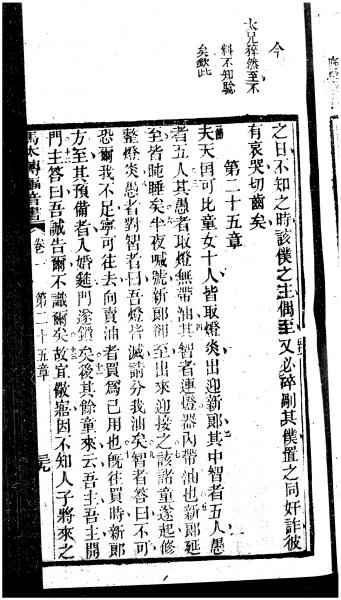 今
太兄猝然至不
料不知騐
矣欽此
之日不知之時該僕之主偶至又必碎剮其僕置之同奸詐彼
有哀哭切齒矣
第二十五章
夫天國可比童女十人皆取燈炎出迎新郎其中智者五人愚
者五人其愚者取燈無帶油其智者連燈器內帶油也新郎延
至皆盹睡矣半夜喊號新郎卻至出來迎接之該諸童遂起修
整燈炎愚者對智者曰吾燈皆滅請分我油矣智者答曰不可
恐爾我不足寧可往去向賣油者買為己用也旣往買時新郎
方至其預備者入婚筵門遂鎖矣後其餘童來云吾主吾主開
門主答曰吾誠告爾不識爾矣故宜儆寤因不知人子將來之
馬太傳福音書
卷一
第二十五章